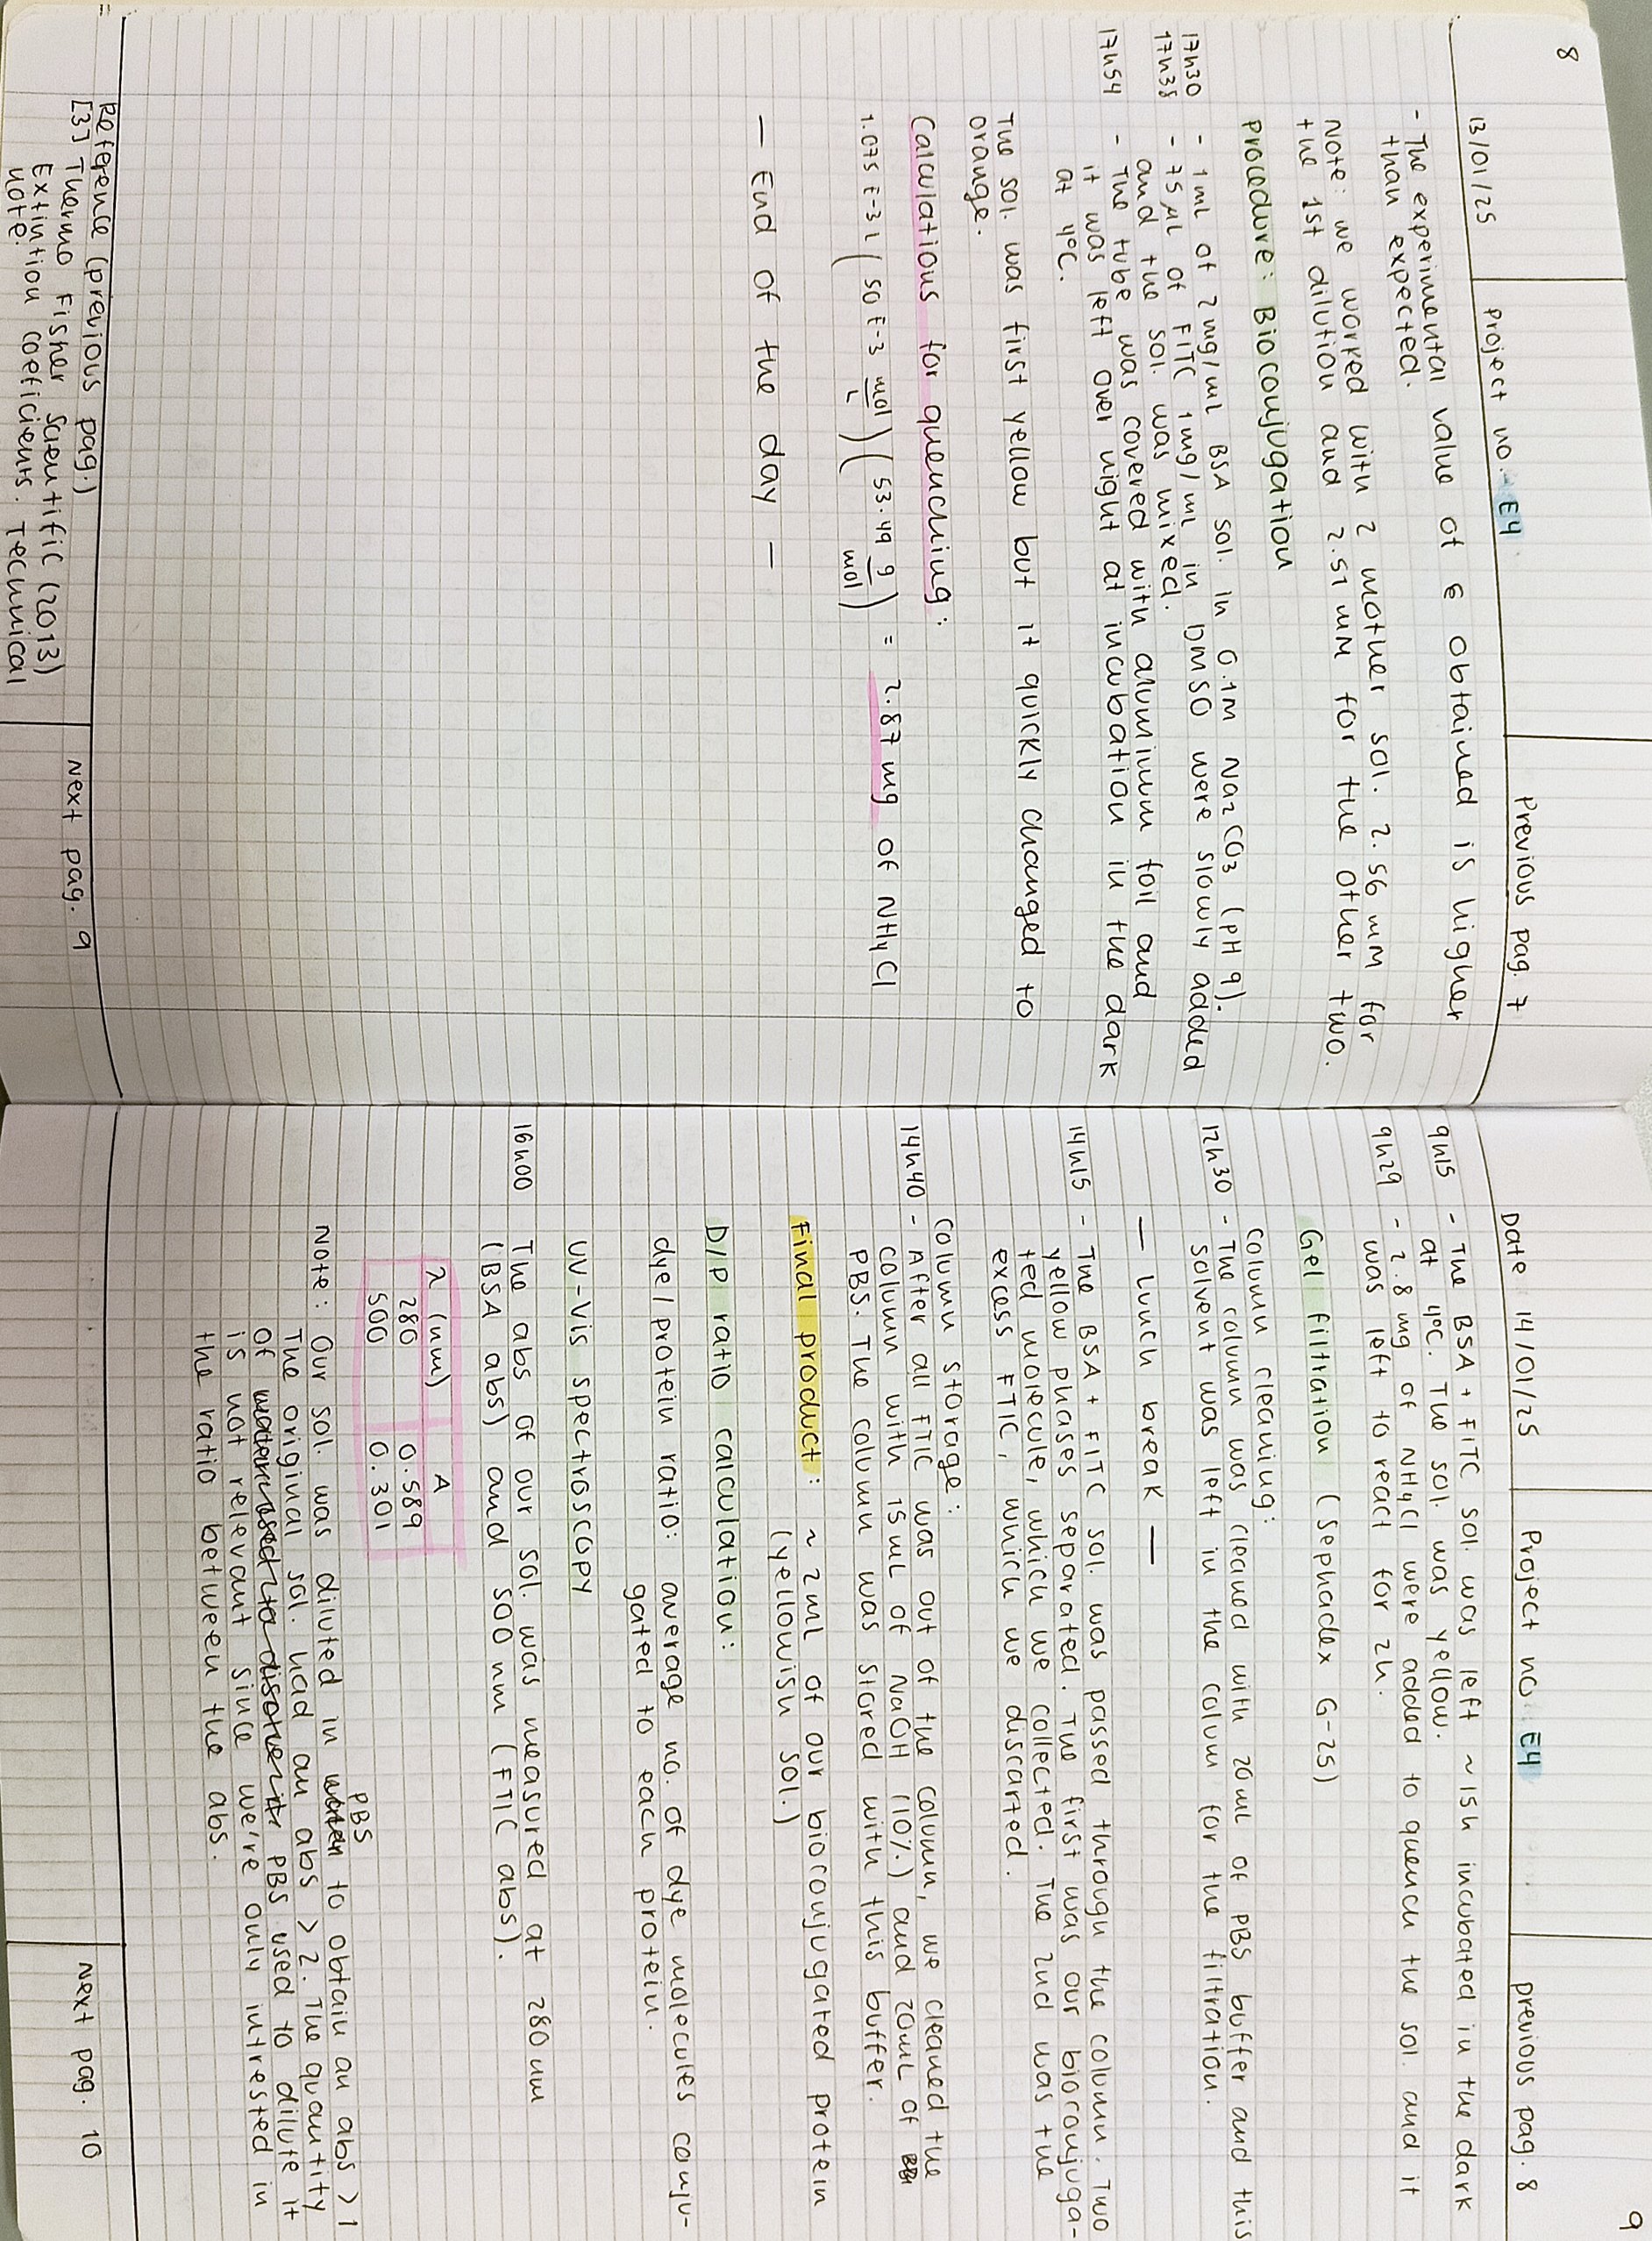 8
13/01/25
Project no. E4
Previous pag. 7
- The experimental value of ϵ obtained is higher
than expected.
Note: we worked with 2 mother sol. 2.56 mM for
the 1st dilution and 2.51 mM for the other two.
Procedure: Bioconjugation
17h30 - 1ml of 2 mg/ml BSA sol. in 0.1M Na2CO3 (pH 9).
17h38 - 75 µl of FITC 1mg/ml in DMSO were slowly added
and the sol. was mixed.
17h54 - The tube was covered with aluminum foil and
it was left over night at incubation in the dark
at 4°C.
The sol. was first yellow but it quickly changed to
orange.
Calculations for quenching:
1.075 E-3 l (50 E-3 mol/L) (53.49 g/mol) = 2.87 mg of NH4Cl
— End of the day —
Reference (previous pag.)
[3] Thermo Fisher Scientific (2013)
Extintion coeficients. Technical
note.
Next pag. 9
9
Date 14/01/25
Project no. E4
previous pag. 8
9h15 - The BSA + FITC sol. was left ~15h incubated in the dark
at 4°C. The sol. was yellow.
9h29 - 2.8 mg of NH4Cl were added to quench the sol. and it
was left to react for 2h.
Gel filtration (Sephadex G-25)
Column cleaning:
12h30 - The column was cleaned with 20ml of PBS buffer and this
solvent was left in the colum for the filtration.
— Lunch break —
14h15 - The BSA + FITC sol. was passed through the column. Two
yellow phases separated. The first was our bioconjuga-
ted molecule, which we collected. The 2nd was the
excess FTIC, which we discarted.
Column storage:
14h40 - After all FTIC was out of the column, we cleaned the
column with 15mL of NaOH (10%) and 20mL of
PBS. The column was stored with this buffer.
Final product: ~ 2ml of our bioconjugated protein
(yellowish sol.)
D/P ratio calculation:
dye/protein ratio: average no. of dye molecules conju-
gated to each protein.
UV-Vis spectroscopy
16h00 The abs of our sol. was measured at 280 nm
(BSA abs) and 500 nm (FTIC abs).
λ (nm) A
280 0.589
500 0.301
PBS
Note: Our sol. was diluted in water to obtain an abs > 1
The original sol. had an abs > 2. The quantity
of PBS used to dilute it
is not relevant since we're only intrested in
the ratio between the abs.
Next pag. 10